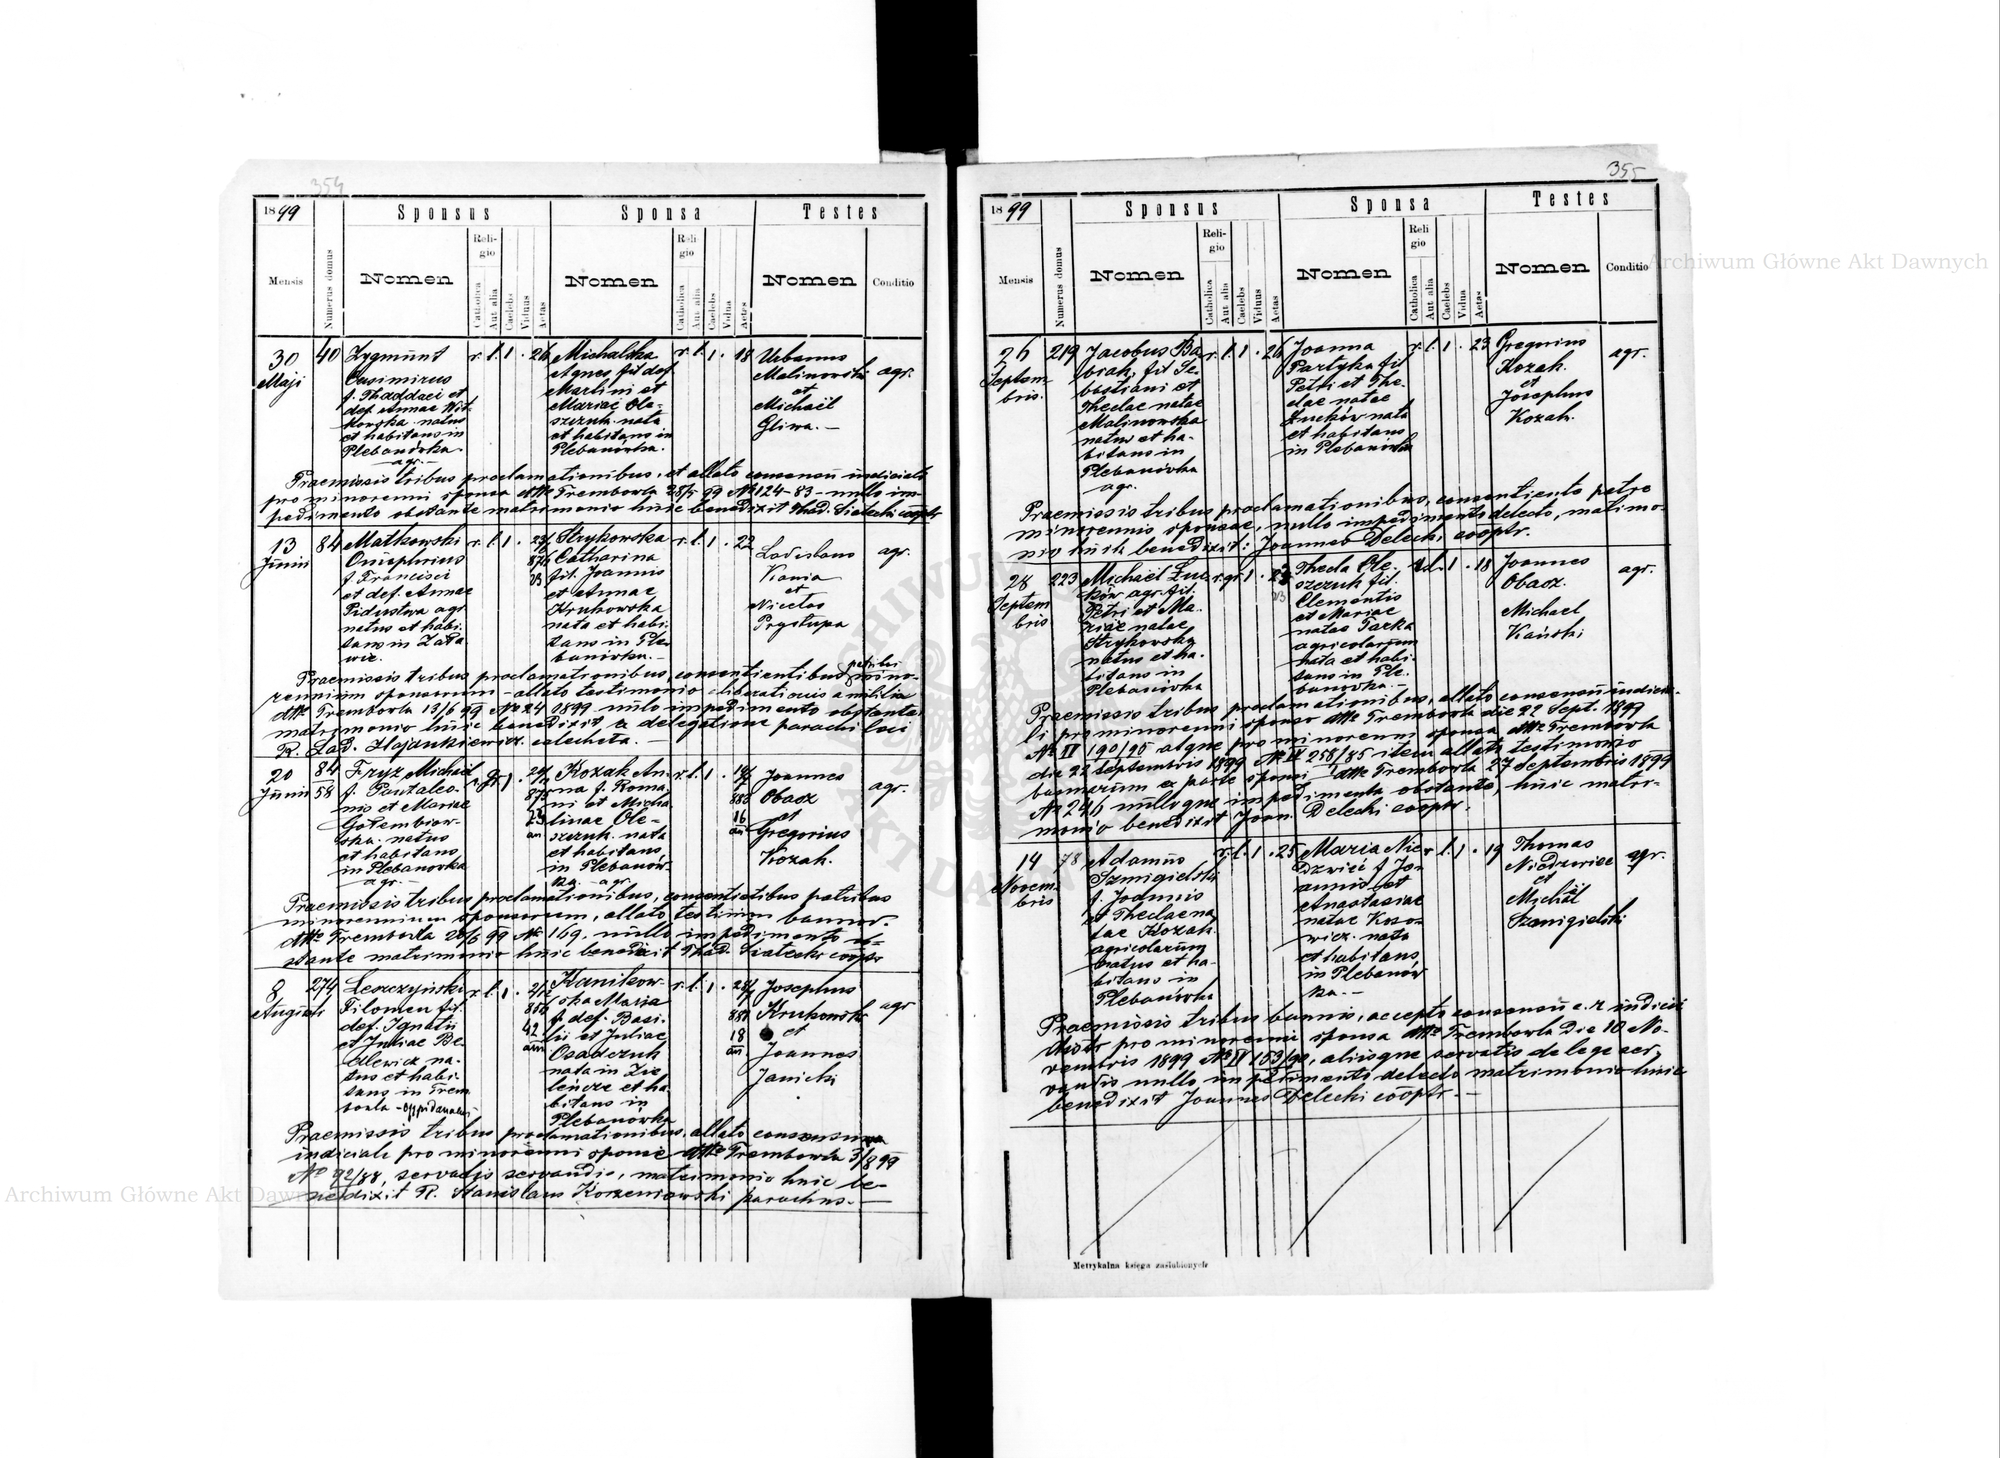 354
1899
Sponsus
Sponsa
Testes
Mensis
Numerus domus
Nomen
Religio
Catholica
Aut alia
Caelebs
Viduus
Aetas
Nomen
Religio
Catholica
Aut alia
Caelebs
Vidua
Aetas
Nomen
Conditio
30 Maji
40
Zygmunt
Casimirus
f. Thaddaei et
def. Annae Wit-
kowska natus
et habitans in
Plebanówka
agr.
r. l. 1 . 26
Michalska
Agnes fil def.
Martini et
Mariae Ole-
szczuk nata
et habitans in
Plebanówka.
r. l. 1 . 18
Urbanus
Malinowski
et
Michaël
Gliwa.
agr.
Praemissis tribus proclamationibus, et allato consensu iudiciali
pro minorenni sponsa dtto Trembowla 28/5 99 No 124-83 - nullo im-
pedimento obstante matrimonio huic benedixit Thad. Sialecki cooptr
13 Junii
84
Matkowski
Onuphrius
f. Francisci
et def. Annae
Pidustwa agr.
natus et habi-
tans in Zała-
wie.
r. l. 1 .
23
Strykowska
Catharina
fil. Joannis
et Annae
Krukowska
nata et habi-
tans in Ple-
banówka.
r. l. 1 . 22
Ladislaus
Kania
et
Nicetas
Prystupa
agr.
Praemissis tribus proclamationibus, consentientibus patribus mino-
rennium sponsorum - allato testimonio liberationis a militia
dtto Trembowla 13/6 99 No 24 1899 nullo impedimento obstante
matrimonio huic benedixit a delegatione parochi loci
R. Lad. Hajdukiewicz catecheta.
20 Junii
84
58
Fryz Michaël
f. Pantaleo-
nis et Mariae
Gołembiow-
ska natus
et habitans
in Plebanówka
agr.
r. gr. 1 .
23
an
Kozak An-
na f. Roma-
ni et Micha-
linae Ole-
szczuk nata
et habitans
in Plebanów-
ka agr.
r. l. 1 .
16
an
Joannes
Obacz
et
Gregorius
Kozak.
agr.
Praemissis tribus proclamationibus, consentientibus patribus
minorennium sponsorum, allato testimon bannor.
dtto Trembowla 20/6 99 No 169, nullo impedimento ob-
stante matrimonio huic benedixit Thad. Sialecki cooptr
8 Augusti
274
Leszczyński
Filomen fil.
def. Ignatii
et Juliae Be-
natus et habi-
tans in Trem-
bowla - oppidanus
r. l. 1 .
42
an
Kanikow-
ska Maria
f. def. Basi-
lii et Juliae
Osadczuk
nata in Zie-
leńcze et ha-
bitans in
Plebanówka
r. l. 1 .
18
an
Josephus
Krukowski
et
Joannes
Janicki
agr
Praemissis tribus proclamationibus, allato consensu
iudiciale pro minorenni sponsae dtto Trembowla 3/8 99
No 92/88, servatis servandis, matrimonio huic be-
nedixit R. Stanislaus Korzeniowski parochus.
355
1899
Sponsus
Sponsa
Testes
Mensis
Numerus domus
Nomen
Religio
Catholica
Aut alia
Caelebs
Viduus
Aetas
Nomen
Religio
Catholica
Aut alia
Caelebs
Vidua
Aetas
Nomen
Conditio
26 Septem-
bris.
219
Jacobus Ba-
biak, fil Se-
bastiani et
Theclae natae
Malinowska
natus et ha-
bitans in
Plebanówka
agr.
r. l. 1 . 26
Joanna
Partyka fil
Petri et The-
clae natae
Łucków nata
et habitans
in Plebanówka
r. l. 1 . 23
Gregorius
Kozak.
et
Josephus
Kozak.
agr.
Praemissis tribus proclamationibus, consentiente patre
minorennis sponsae, nullo impedimento detecto, matrimo-
nio huic benedixit: Joannes Delecki cooptr.
28 Septem
bris
223
Michaël Łuc-
ków agr. fil.
Petri et Ma-
riae natae
Strykowska
natus et ha-
bitans in
Plebanówka
r. gr. 1 .
23
Thecla Ole-
szczuk fil.
Clementis
et Mariae
natae Tarka
agricolarum
nata et habi-
tans in Ple-
banówka.
1 . 18
Joannes
Obacz.
Michael
Kański
agr.
Praemissis tribus proclamationibus, allato consensu iudicia-
li pro minorenni sponso dtto Trembowla die 22 Sept. 1899
No IV 190/95 atque pro minorenni sponsa dtto Trembowla
die 22 Septembris 1899 No IV 258/85 item allato testimonio
bannorum ex parte sponsi dtto Trembowla 27 Septembris 1899
No 246 nulloque impedimento obstante, huic matri-
monio benedixit Joan. Delecki cooptr.
14 Novem-
bris
78
Adamus
Szmigielski
f. Joannis
et Theclae na-
tae Kozak
agricolarum
natus et ha-
bitans in
Plebanówka
r. l. 1 . 25
Maria Nie-
dzwić f Jo-
annis et
Anastasiae
natae Koso-
wicz nata
et habitans
in Plebanów
ka.
r. l. 1 . 19
Thomas
Niedzwiec
et
Michäl
Szmigielski
agr.
Praemissis tribus bannis, accepto consensu c. r. iudicii
distr pro minorenni sponsa dtto Trembowla die 10 No-
vembris 1899 No IV 153/90, aliisque servatis de lege ser-
vandis nullo impedimento detecto matrimonio huic
benedixit Joannes Delecki cooptr.
Metrykalna księga zaślubionych
Archiwum Główne Akt Dawnych
Archiwum Główne Akt Dawnych
ARCHIWUM
AKT DAWNYCH